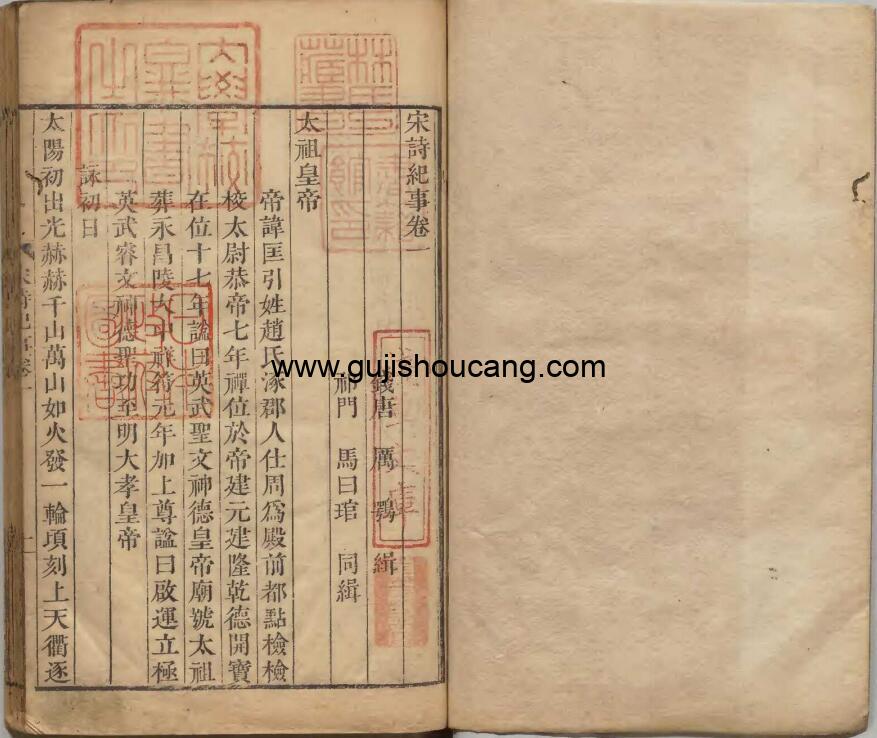 宋詩紀事卷一
錢唐 厲鶚 緝
祁門 馬曰琯 同緝
太祖皇帝
帝諱匡引姓趙氏涿郡人仕周爲殿前都點檢檢
校太尉恭帝七年禪位於帝建元建隆乾德開寶
在位十七年諡曰英武聖文神德皇帝廟號太祖
葬永昌陵大中祥符元年加上尊諡曰啟運立極
英武睿文神德聖功至明大孝皇帝
詠初日
太陽初出光赫赫千山萬山如火發一輪頃刻上天衢逐
www.gujishoucang.com